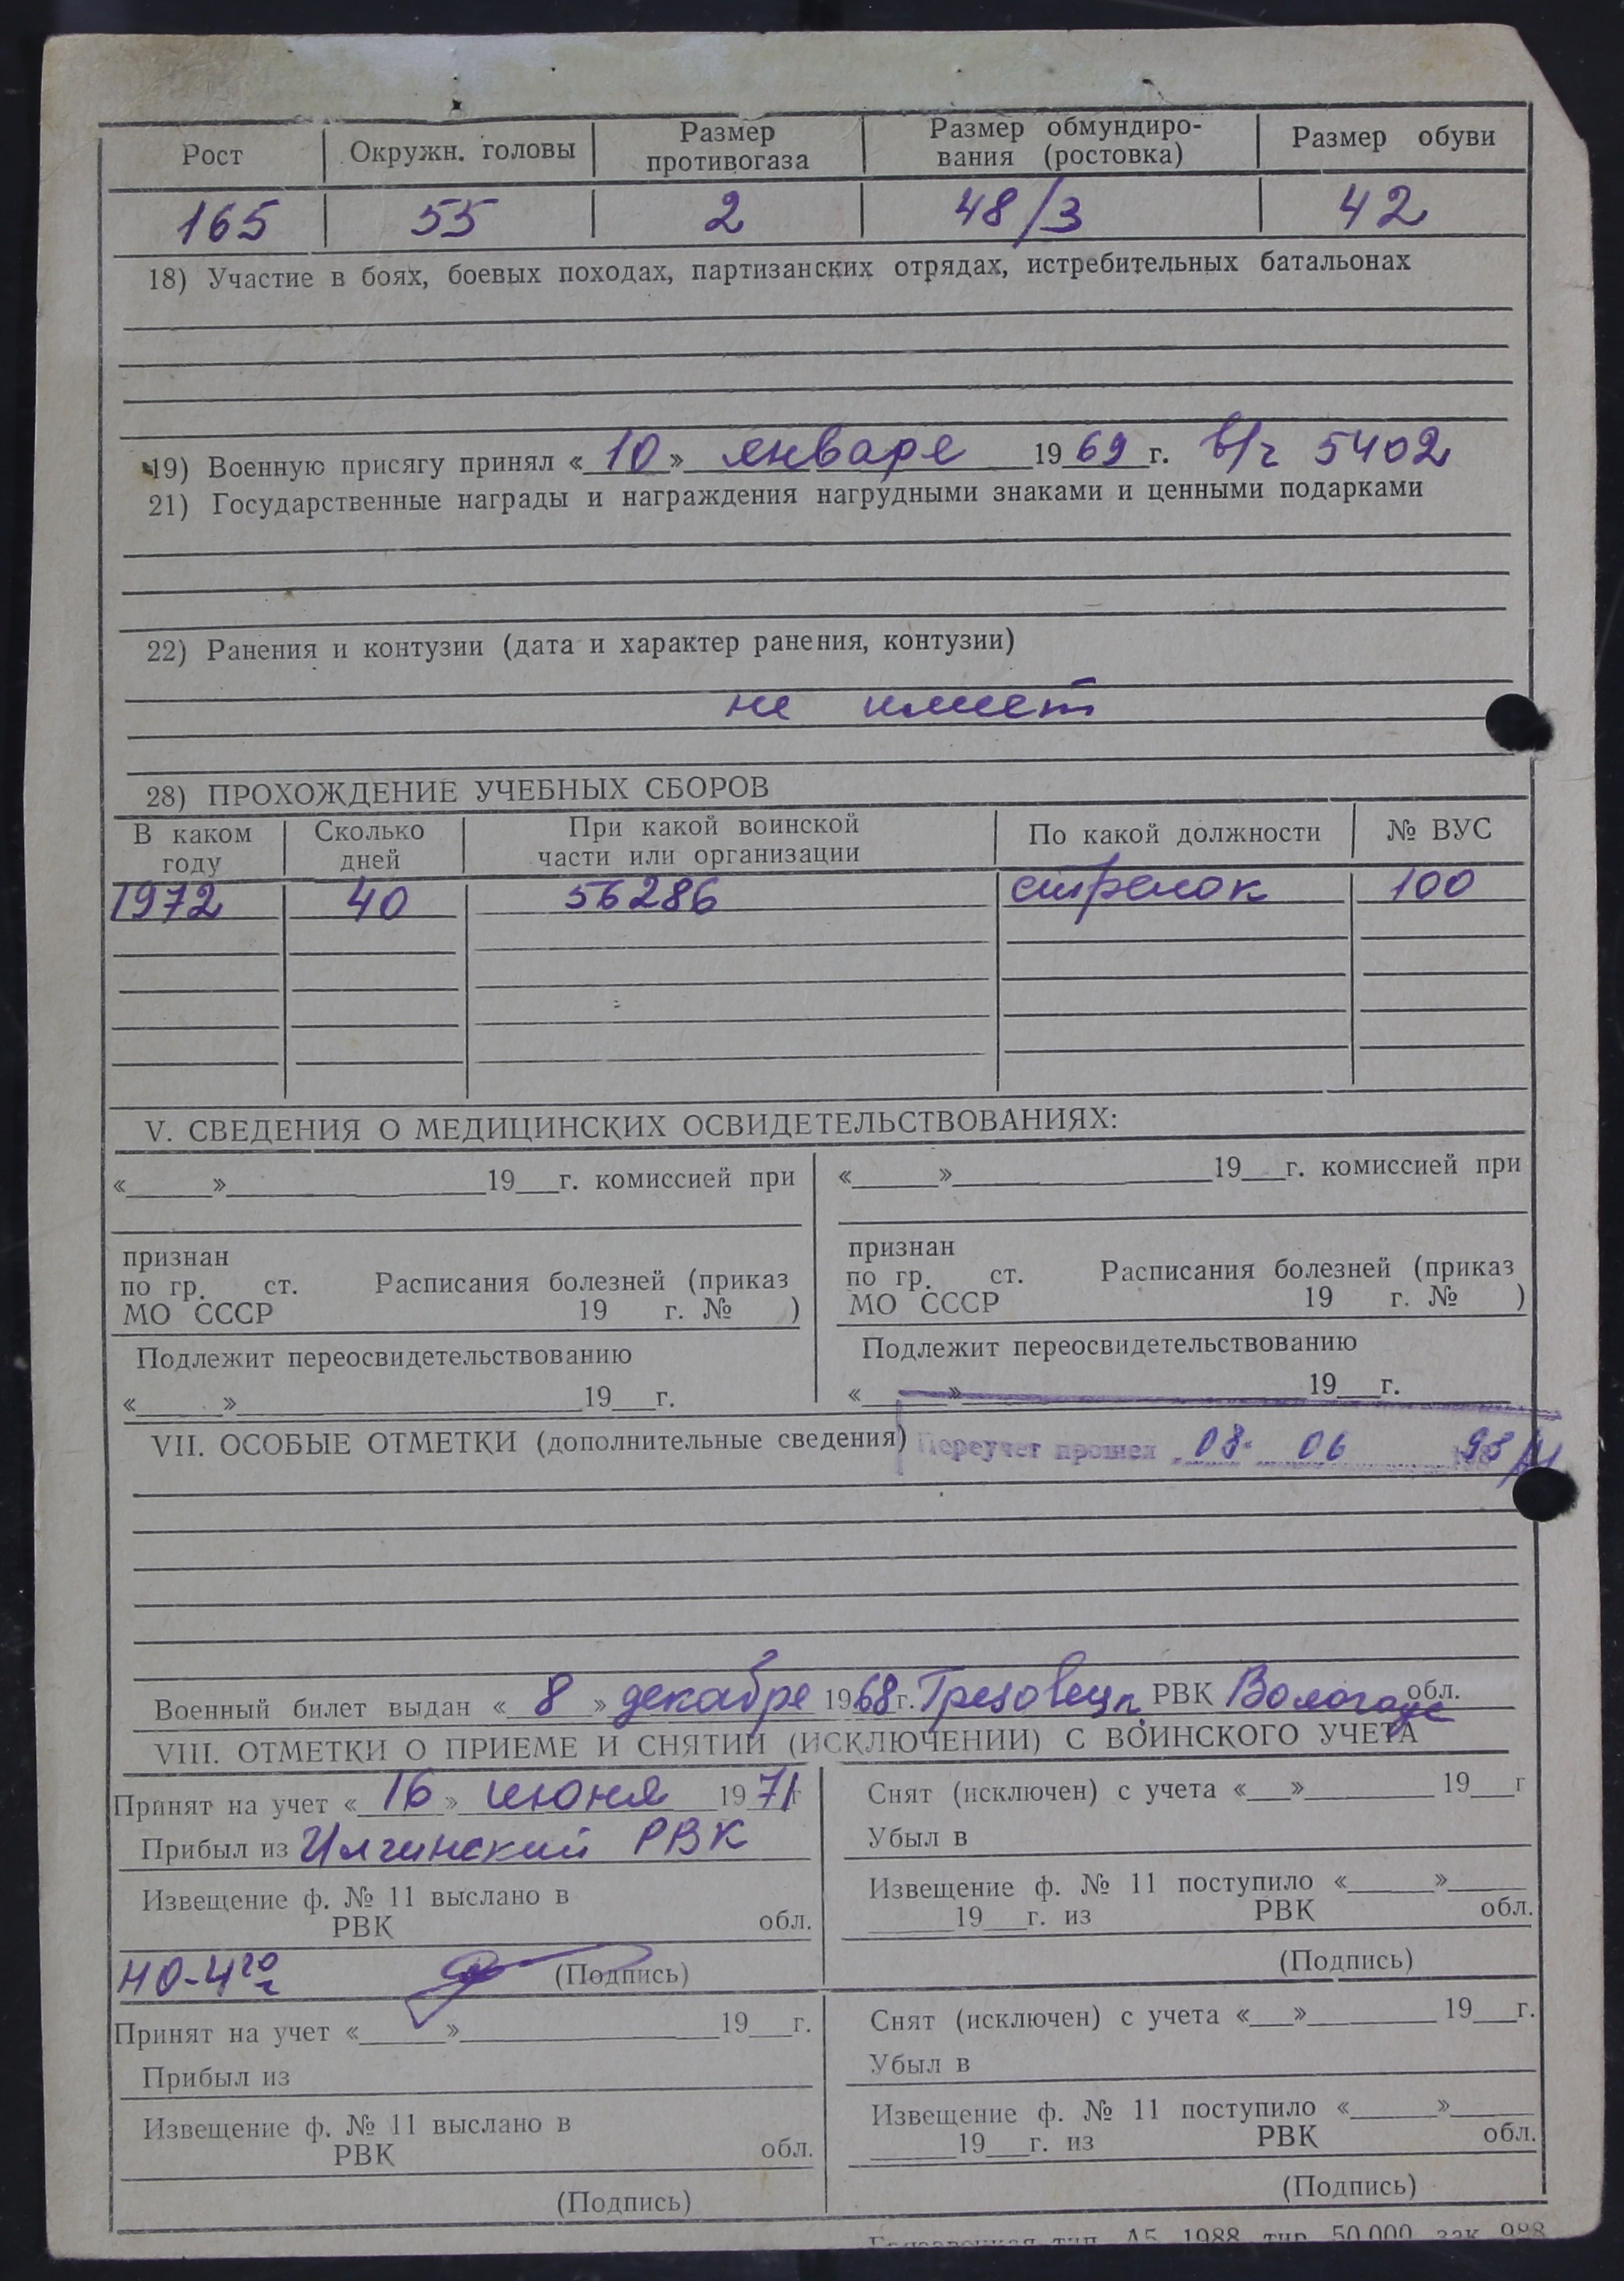 Рост Окружн. головы Размер противогаза Размер обмундиро-вания (ростовка) Размер обуви
165 55 2 48/3 42
18) Участие в боях, боевых походах, партизанских отрядах, истребительных батальонах
19) Военную присягу принял «10» января 1969 г. в/ч 5402
21) Государственные награды и награждения нагрудными знаками и ценными подарками
22) Ранения и контузии (дата и характер ранения, контузии)
не имеет
28) ПРОХОЖДЕНИЕ УЧЕБНЫХ СБОРОВ
В каком году Сколько дней При какой воинской части или организации По какой должности № ВУС
1972 40 56286 стрелок 100
V. СВЕДЕНИЯ О МЕДИЦИНСКИХ ОСВИДЕТЕЛЬСТВОВАНИЯХ:
«___»___19__г. комиссией при
признан
по гр. ст. Расписания болезней (приказ
МО СССР 19 г. № )
Подлежит переосвидетельствованию
«___»___19__г.
«___»___19__г. комиссией при
признан
по гр. ст. Расписания болезней (приказ
МО СССР 19 г. № )
Подлежит переосвидетельствованию
«___»___19__г.
VII. ОСОБЫЕ ОТМЕТКИ (дополнительные сведения) Переучет прошел 08. 06
Военный билет выдан «8» декабре 1968 г. Грязовецк. РВК Вологодс обл.
VIII. ОТМЕТКИ О ПРИЕМЕ И СНЯТИИ (ИСКЛЮЧЕНИИ) С ВОИНСКОГО УЧЕТА
Принят на учет «16» июня 1971 г
Прибыл из РВК
Извещение ф. № 11 выслано в
РВК обл.
(Подпись)
Снят (исключен) с учета «__»___ 19__г
Убыл в
Извещение ф. № 11 поступило «___»___
___19__г. из РВК обл.
(Подпись)
Принят на учет «___»___19__г.
Прибыл из
Извещение ф. № 11 выслано в
РВК обл.
(Подпись)
Снят (исключен) с учета «__»___ 19__г.
Убыл в
Извещение ф. № 11 поступило «___»___
___19__г. из РВК обл.
(Подпись)
тип. А5 1988 тир. 50.000 зак.